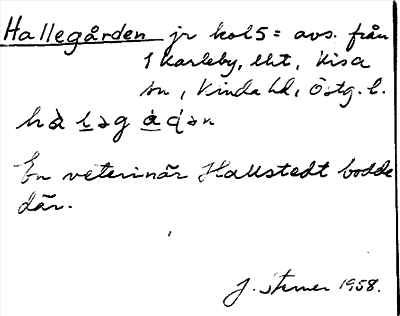 Hallegården jr kol5 = avs. från
1 Karleby, lht, Kisa
sn, Kinda hd, Östg. l.
En veterinär Hallstedt bodde
där.
J. 1958.